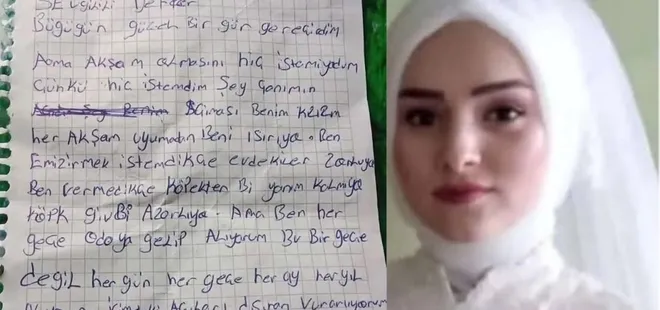 SEVgİLİ Defter
Bügügün güzel Bir gün gerçirdim
Ama AkŞam olmasını hiç istemiyodum
Çünkü hiç istemdim Şey Canımın
Sıması Benim Kızım
her AkŞam uyumadan Beni ısırıya. Ben
Emizirmek istemdikçe evdekiler
Ben vermedikçe köpekten Bi yanım kalmiya
köpk givBi Azarlıya. Ama Ben her
geçe odaya gelip Alıyorum Bu Bir geçe
değil her gün her geçe her ay her yıl